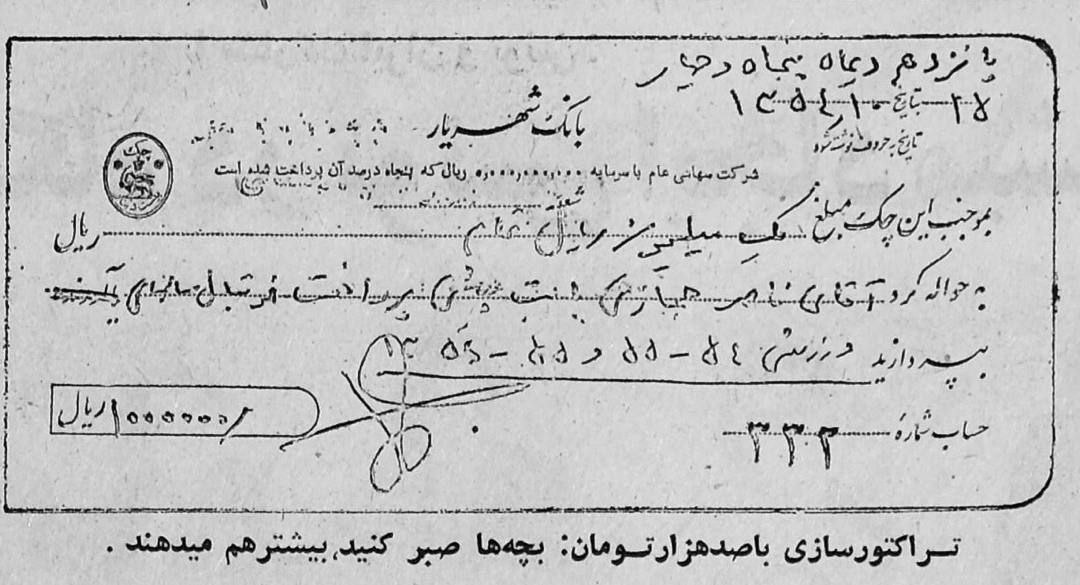 پانزدهم دیماه پنجاه و چهار
تاریخ ۱۵/۱۰/۱۳۵۴
تاریخ به حروف نوشته شود
بانک شهریار
شرکت سهامی عام با سرمایه ریال که پنجاه درصد آن پرداخت شده است
چک
شعبه
بموجب این چک مبلغ یک میلیون ریال تمام ریال
به حواله کرد آقای ناصر حجازی بابت پیش پرداخت فوتبال سالهای
بپردازید ورزشی ۵۴ - ۵۵ و ۵۵ - ۵۶ ۱۳
۱۰۰۰۰۰۰/ ریال
حساب شماره ۳۳۳
تراکتورسازی باصدهزارتومان: بچه‌ها صبر کنید، بیشترهم میدهند.